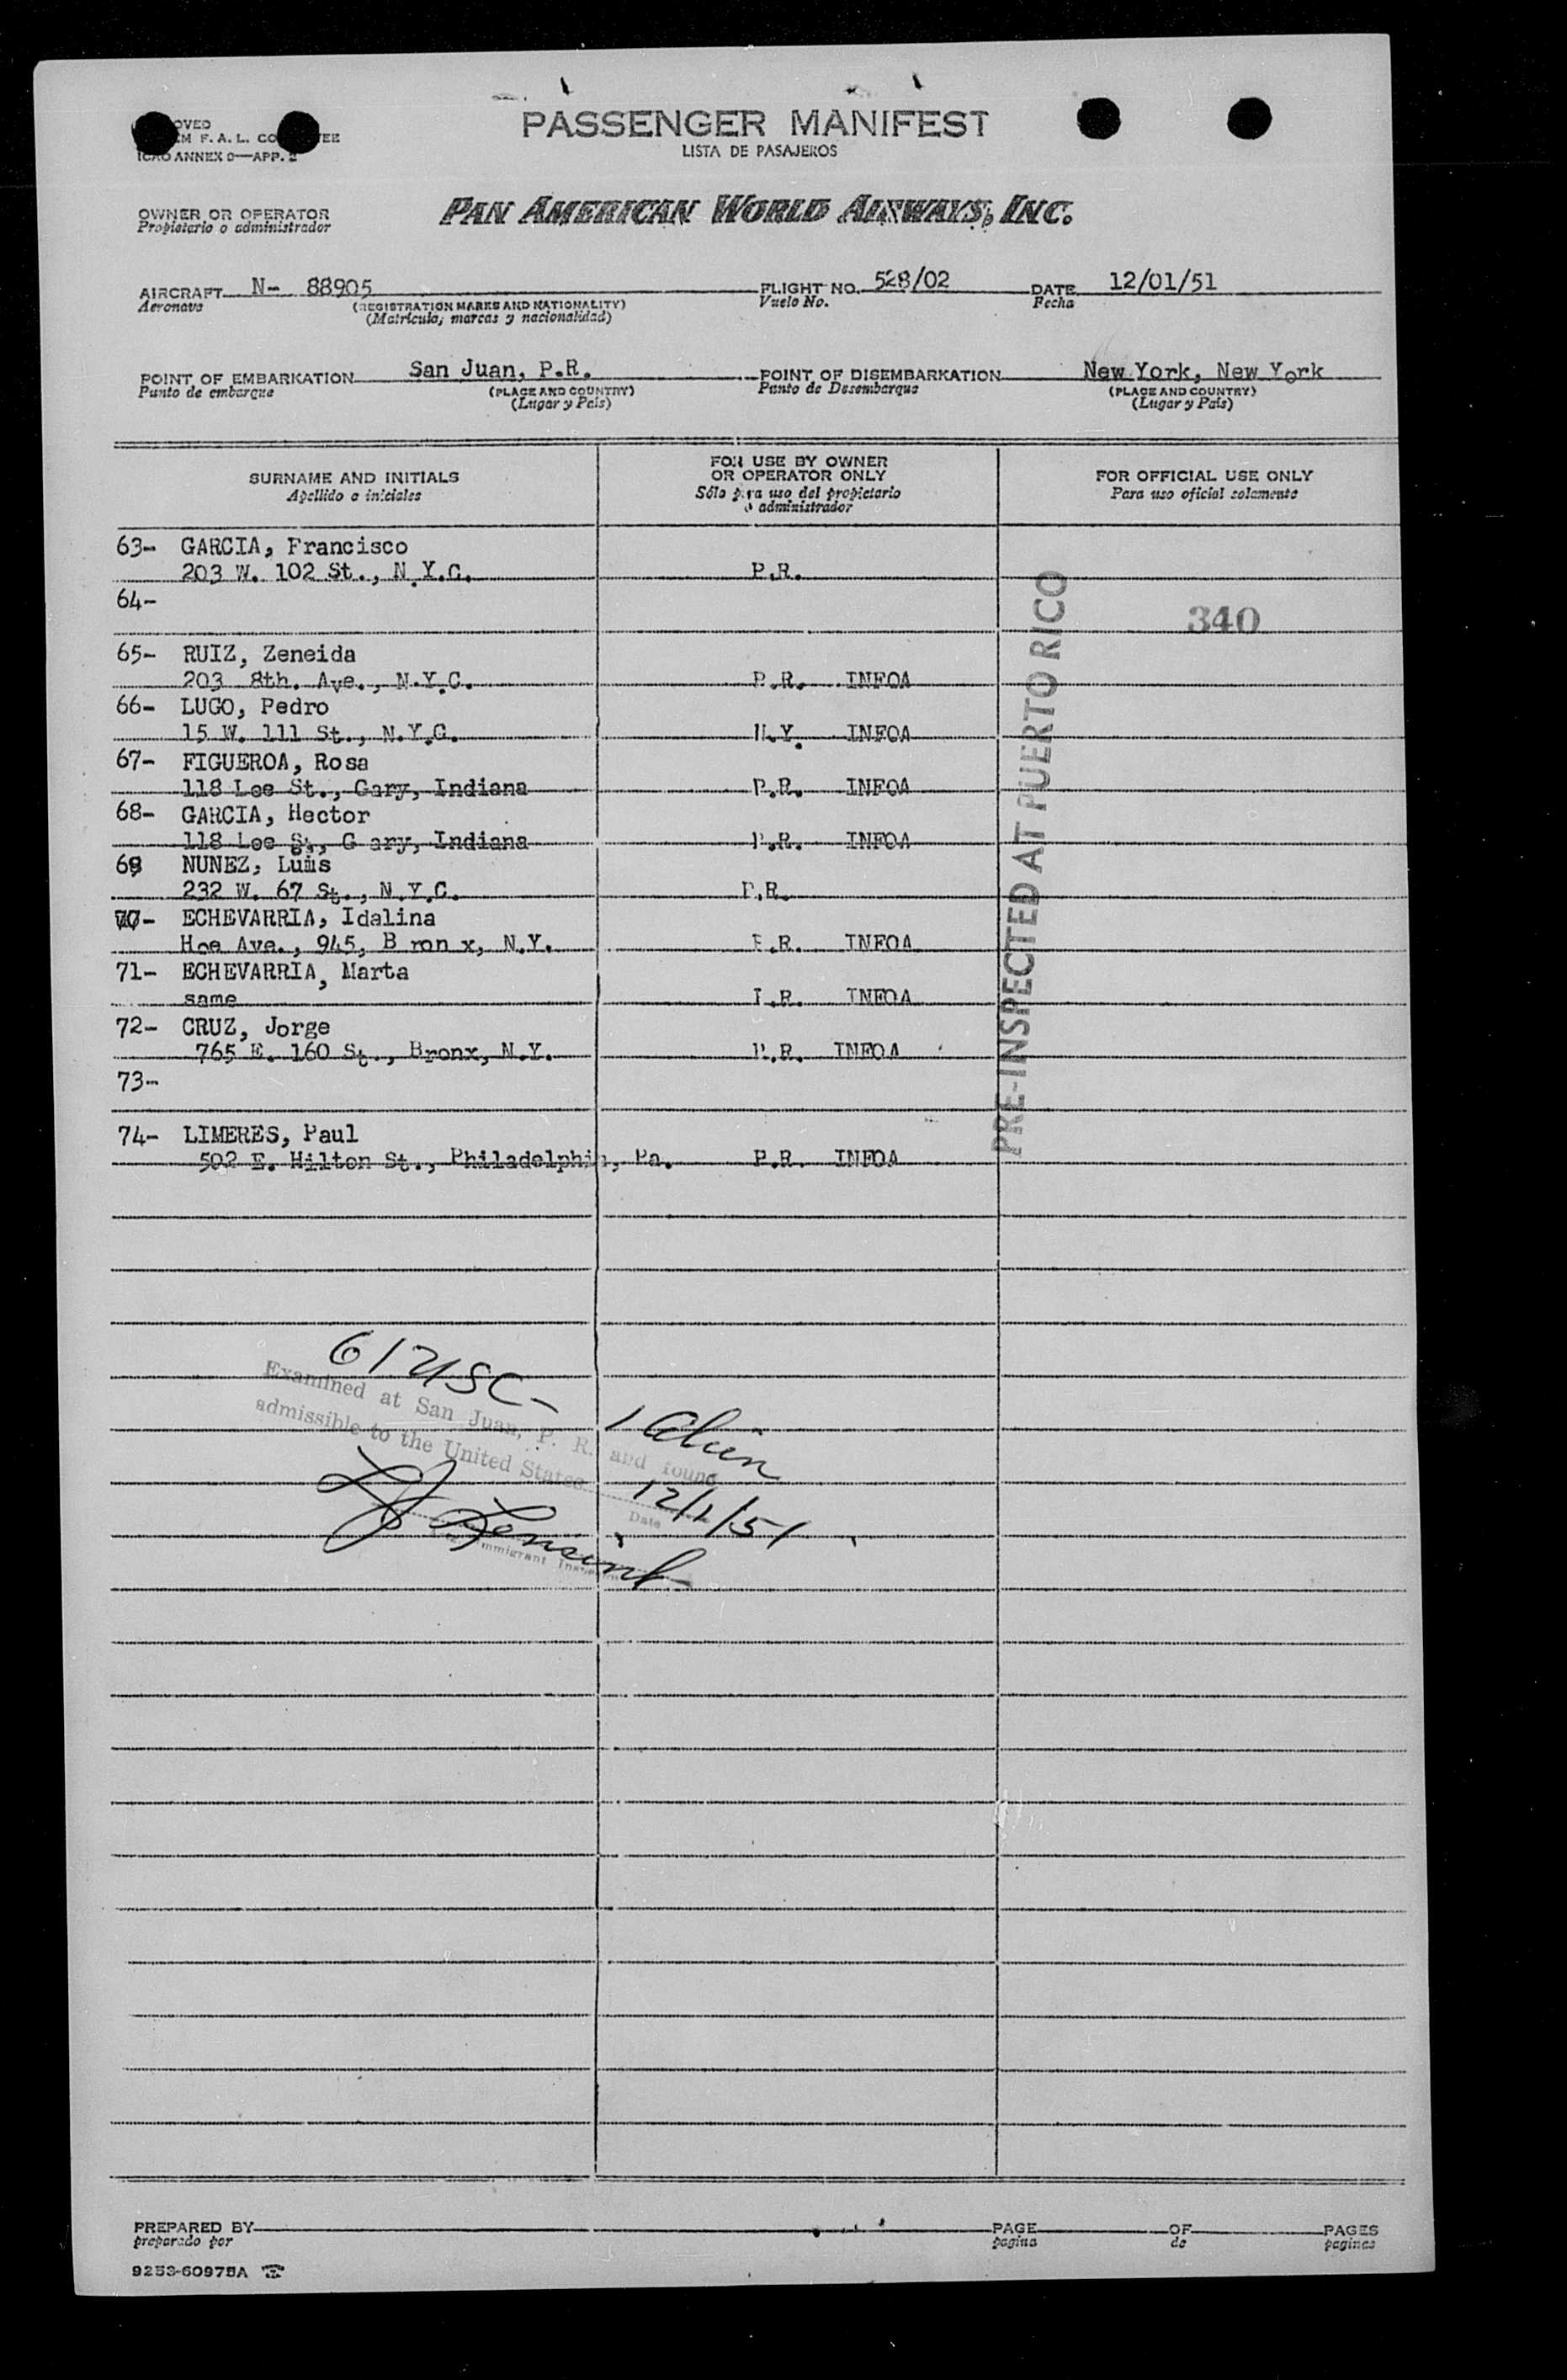 PASSENGER MANIFEST
LISTA DE PASAJEROS
F. A. L.
ICAO ANNEX 9—APP. 2
OWNER OR OPERATOR
Propietario o administrador
PAN AMERICAN WORLD AIRWAYS, INC.
AIRCRAFT N- 88905 FLIGHT NO. 528/02 DATE 12/01/51
Aeronave (REGISTRATION MARKS AND NATIONALITY) Vuelo No. Fecha
(Matricula, marcas y nacionalidad)
POINT OF EMBARKATION San Juan, P.R. POINT OF DISEMBARKATION New York, New York
Punto de embarque (PLACE AND COUNTRY) Punto de Desembarque (PLACE AND COUNTRY)
(Lugar y País) (Lugar y País)
SURNAME AND INITIALS FOR USE BY OWNER OR OPERATOR ONLY FOR OFFICIAL USE ONLY
Apellido e iniciales Sólo para uso del propietario o administrador Para uso oficial solamente
63- GARCIA, Francisco
203 W. 102 St., N.Y.C. P.R.
64-
340
65- RUIZ, Zeneida
203 8th. Ave., N.Y.C. P.R. INFOA
66- LUGO, Pedro
15 W. 111 St., N.Y.C. N.Y. INFOA
67- FIGUEROA, Rosa
118 Lee St., Gary, Indiana P.R. INFOA
68- GARCIA, Hector
118 Lee St, G ary, Indiana P.R. INFOA
69 NUNEZ, Luis
232 W. 67 St., N.Y.C. P.R.
70- ECHEVARRIA, Idalina
Hoe Ave., 945, B ron x, N.Y. P.R. INFOA
71- ECHEVARRIA, Marta
same P.R. INFOA
72- CRUZ, Jorge
765 E. 160 St., Bronx, N.Y. P.R. INFOA
73-
74- LIMERES, Paul
502 E. Hilton St., Philadelphia, Pa. P.R. INFOA
PRE-INSPECTED AT PUERTO RICO
61 USC- 1 Alien
Examined at San Juan, P. R. and found
admissible to the United States
12/1/51
Date
Immigrant
PREPARED BY PAGE OF PAGES
preparado por pagina de paginas
9253-60975A